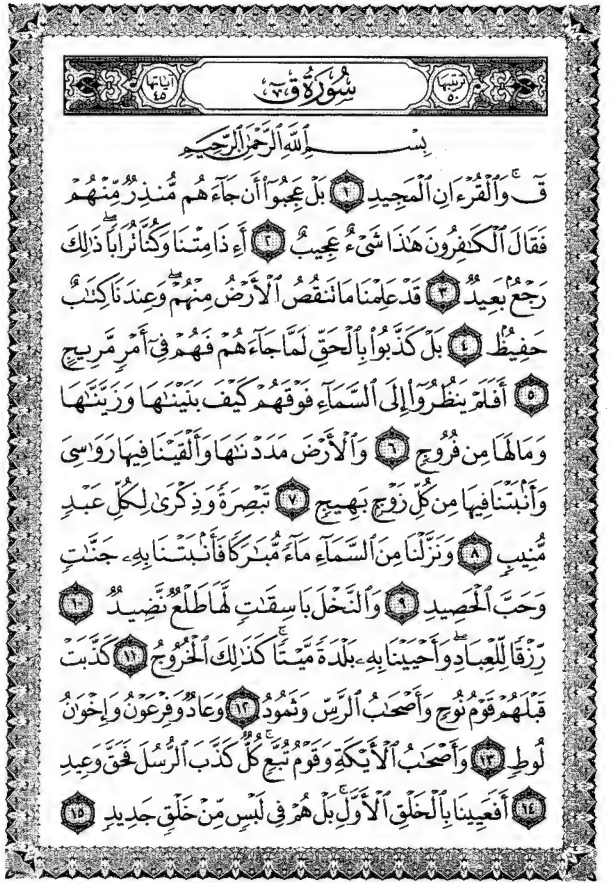 ترتيبها ٥٠ سُورَةُ قٓ آياتها ٤٥
بِسْمِ ٱللَّهِ ٱلرَّحْمَٰنِ ٱلرَّحِيمِ
قٓ ۚ وَٱلْقُرْءَانِ ٱلْمَجِيدِ ١ بَلْ عَجِبُوٓا۟ أَن جَآءَهُم مُّنذِرٌ مِّنْهُمْ
فَقَالَ ٱلْكَٰفِرُونَ هَٰذَا شَىْءٌ عَجِيبٌ ٢ أَءِذَا مِتْنَا وَكُنَّا تُرَابًا ۖ ذَٰلِكَ
رَجْعٌۢ بَعِيدٌ ٣ قَدْ عَلِمْنَا مَا تَنقُصُ ٱلْأَرْضُ مِنْهُمْ ۖ وَعِندَنَا كِتَٰبٌ
حَفِيظٌۢ ٤ بَلْ كَذَّبُوا۟ بِٱلْحَقِّ لَمَّا جَآءَهُمْ فَهُمْ فِىٓ أَمْرٍ مَّرِيجٍ
٥ أَفَلَمْ يَنظُرُوٓا۟ إِلَى ٱلسَّمَآءِ فَوْقَهُمْ كَيْفَ بَنَيْنَٰهَا وَزَيَّنَّٰهَا
وَمَا لَهَا مِن فُرُوجٍ ٦ وَٱلْأَرْضَ مَدَدْنَٰهَا وَأَلْقَيْنَا فِيهَا رَوَٰسِىَ
وَأَنۢبَتْنَا فِيهَا مِن كُلِّ زَوْجٍۭ بَهِيجٍ ٧ تَبْصِرَةً وَذِكْرَىٰ لِكُلِّ عَبْدٍ
مُّنِيبٍ ٨ وَنَزَّلْنَا مِنَ ٱلسَّمَآءِ مَآءً مُّبَٰرَكًا فَأَنۢبَتْنَا بِهِۦ جَنَّٰتٍ
وَحَبَّ ٱلْحَصِيدِ ٩ وَٱلنَّخْلَ بَاسِقَٰتٍ لَّهَا طَلْعٌ نَّضِيدٌ ١٠
رِّزْقًا لِّلْعِبَادِ ۖ وَأَحْيَيْنَا بِهِۦ بَلْدَةً مَّيْتًا ۚ كَذَٰلِكَ ٱلْخُرُوجُ ١١ كَذَّبَتْ
قَبْلَهُمْ قَوْمُ نُوحٍ وَأَصْحَٰبُ ٱلرَّسِّ وَثَمُودُ ١٢ وَعَادٌ وَفِرْعَوْنُ وَإِخْوَٰنُ
لُوطٍ ١٣ وَأَصْحَٰبُ ٱلْأَيْكَةِ وَقَوْمُ تُبَّعٍ ۚ كُلٌّ كَذَّبَ ٱلرُّسُلَ فَحَقَّ وَعِيدِ
١٤ أَفَعَيِينَا بِٱلْخَلْقِ ٱلْأَوَّلِ ۚ بَلْ هُمْ فِى لَبْسٍ مِّنْ خَلْقٍ جَدِيدٍ ١٥